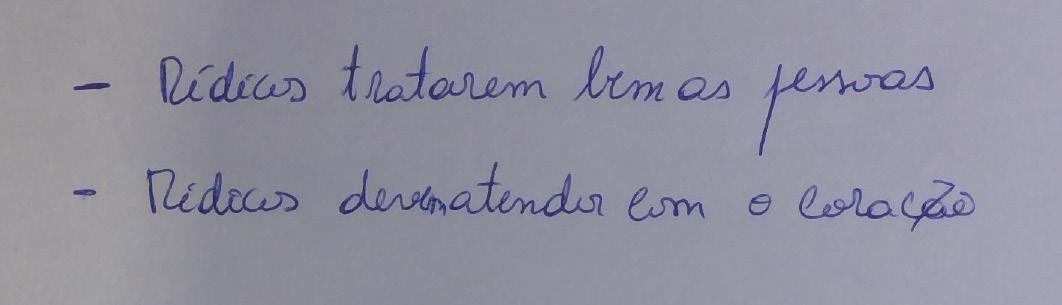 - Médicos tratarem bem as pessoas
- Médicos devem atender com o coração